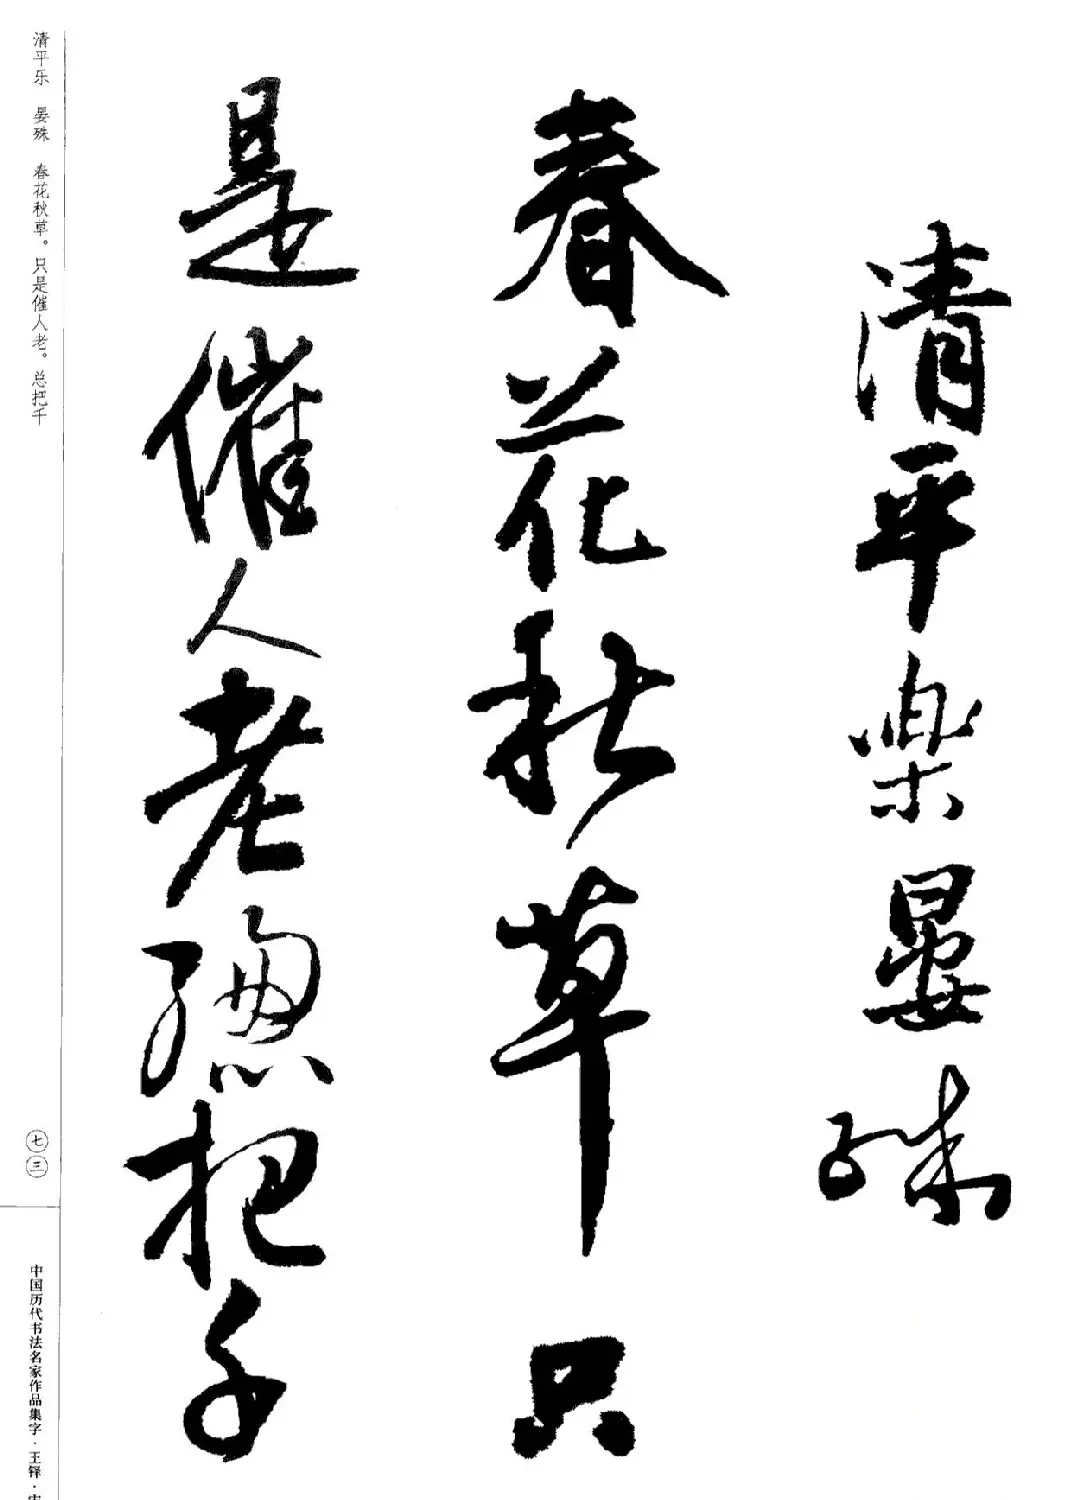 清平樂晏殊
春花秋草只
是催人老總把千
清平乐 晏殊 春花秋草。只是催人老。总把千
七三
中国历代书法名家作品集字·王铎·